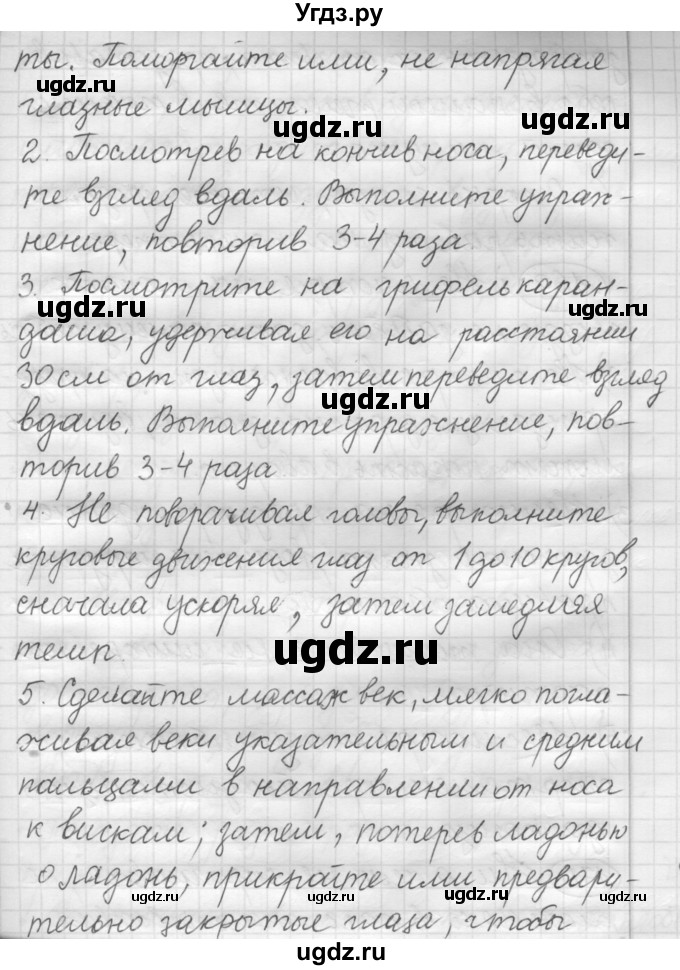 Угдз.ру
ты. Поморгайте ими, не напрягая
ugdz.ru
глазные мышцы.
ugdz.ru
ugdz.ru
2. Посмотрев на кончив носа, переведи-
те взгляд вдаль. Выполните упраж-
ugdz.ru
нение, повторив 3-4 раза
3. Посмотрите на грифель каран-
ugdz.ru
ugdz.ru
даша, удерживая его на расстоянии
30 см от глаз, затем переведите взгляд
ugdz.ru
вдаль. Выполните упражнение, пов-
торив 3-4 раза
4. Не поворачивая головы, выполните
круговые движения глаз от 1 до 10 кругов,
сначала ускоряя, затем замедляя
ugdz.ru
темп.
5. Сделайте массаж век, мягко погла-
живая веки указательным и средним
пальцами в направлении от носа
к вискам; затем, потерев ладонью
о ладонь, прикройте ими предвари-
ugdz.ru
ugdz.ru
тельно закрытые глаза, чтобы
ugdz.ru